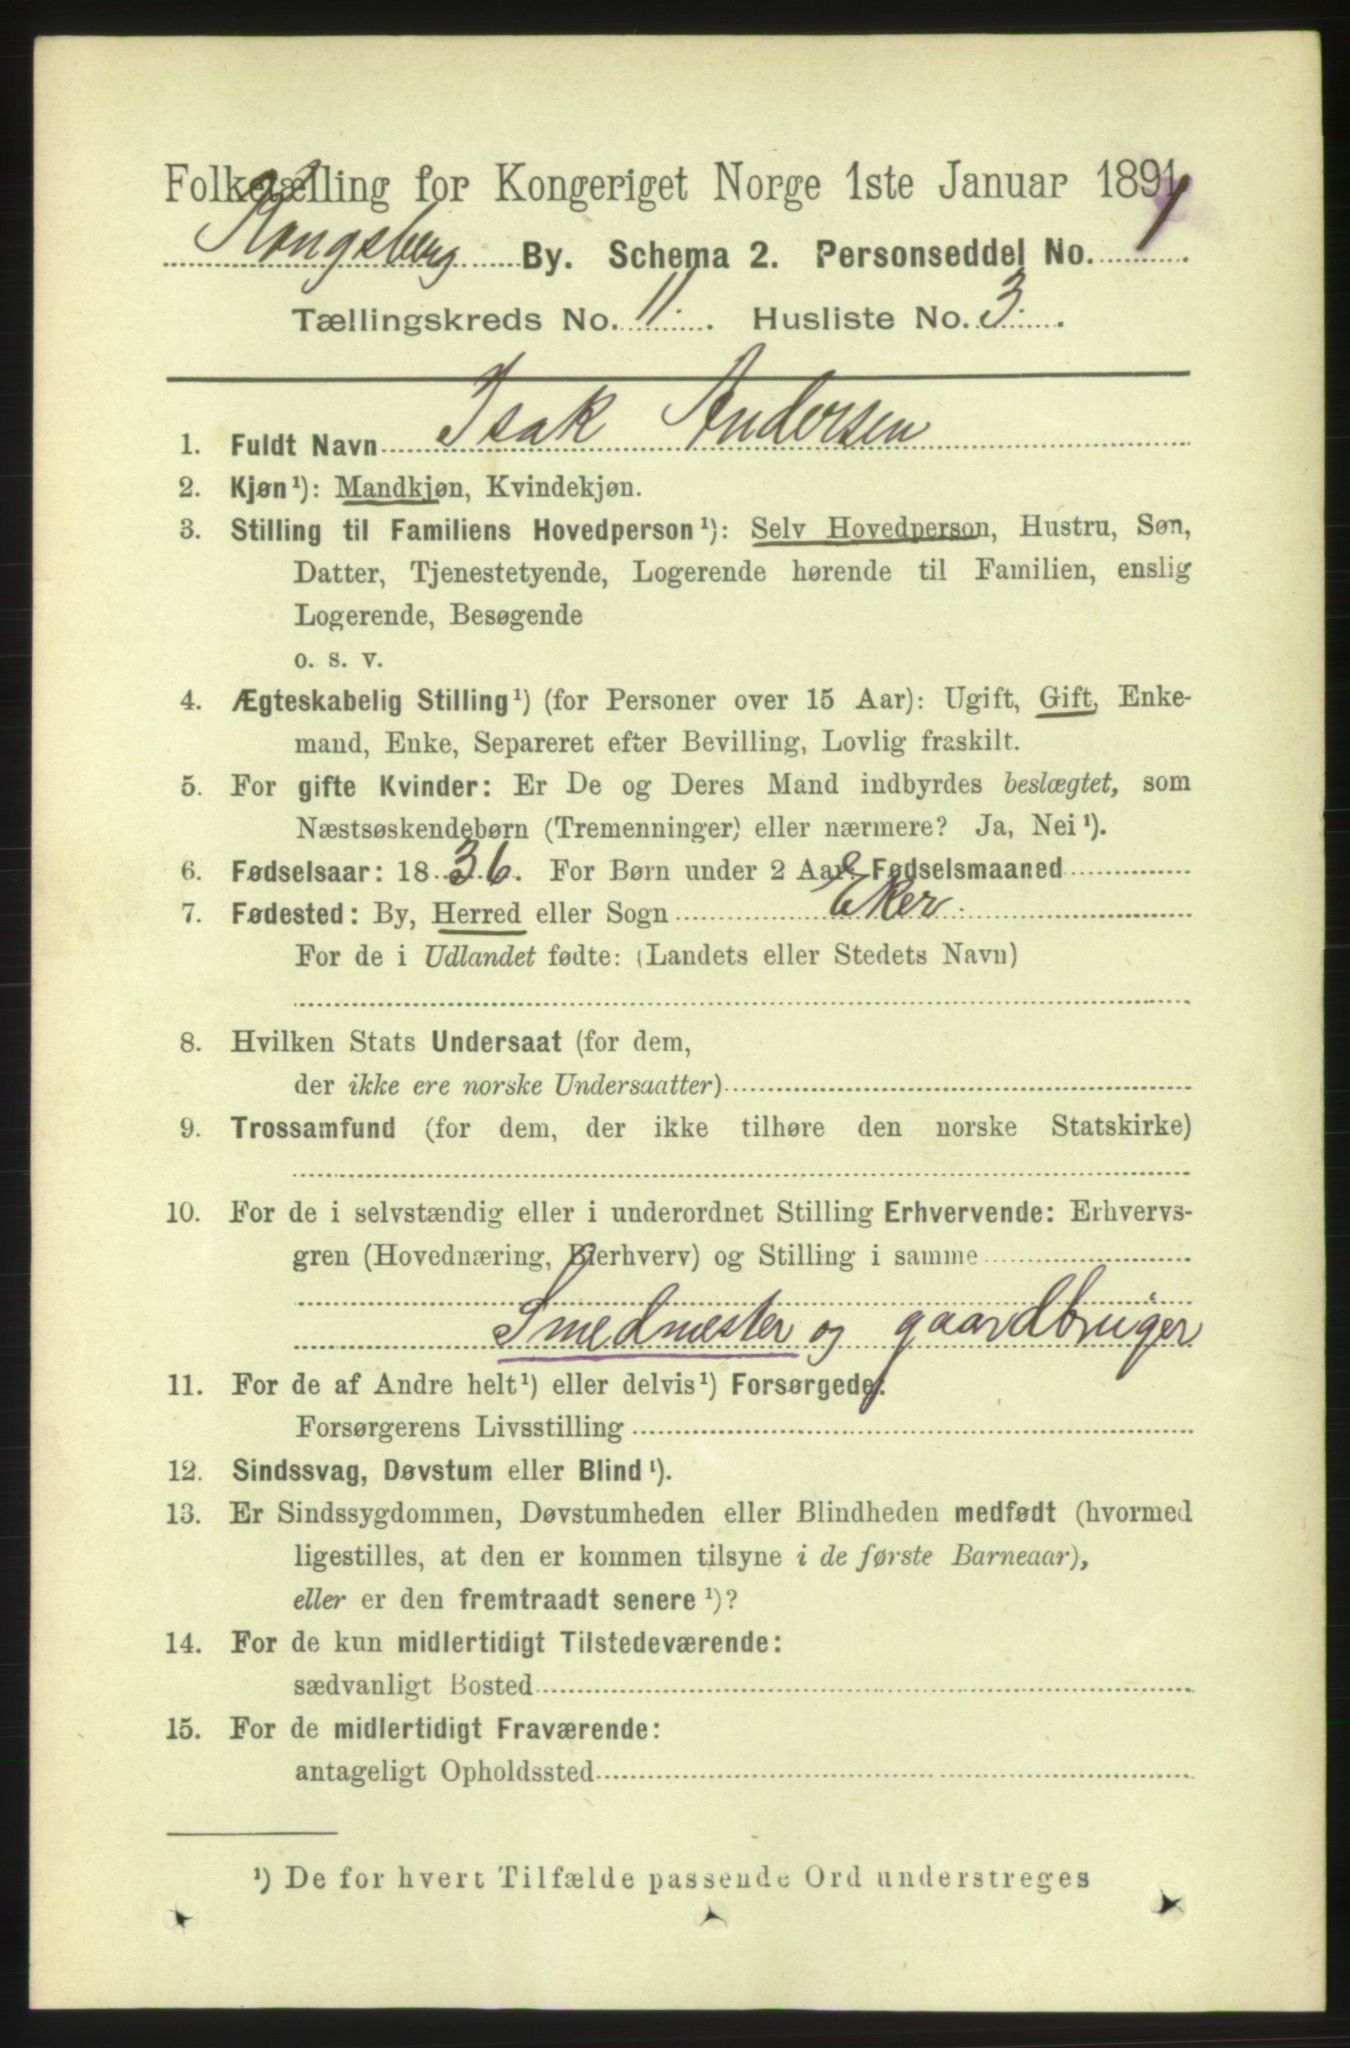 Folketælling for Kongeriget Norge 1ste Januar 1891.
Kongsberg By. Schema 2. Personseddel No. 1.
Tællingskreds No. 11. Husliste No. 3.
1. Fuldt Navn Isak Andersen
2. Kjøn¹): Mandkjøn, Kvindekjøn.
3. Stilling til Familiens Hovedperson¹): Selv Hovedperson, Hustru, Søn,
Datter, Tjenestetyende, Logerende hørende til Familien, enslig
Logerende, Besøgende
o. s. v.
4. Ægteskabelig Stilling¹) (for Personer over 15 Aar): Ugift, Gift, Enke-
mand, Enke, Separeret efter Bevilling, Lovlig fraskilt.
5. For gifte Kvinder: Er De og Deres Mand indbyrdes beslægtet, som
Næstsøskendebørn (Tremenninger) eller nærmere? Ja, Nei¹).
6. Fødselsaar: 1836. For Børn under 2 Aar: Fødselsmaaned
7. Fødested: By, Herred eller Sogn Eker.
For de i Udlandet fødte: (Landets eller Stedets Navn)
8. Hvilken Stats Undersaat (for dem,
der ikke ere norske Undersaatter)
9. Trossamfund (for dem, der ikke tilhøre den norske Statskirke)
10. For de i selvstændig eller i underordnet Stilling Erhvervende: Erhvervs-
gren (Hovednæring, Bierhverv) og Stilling i samme
Smedmester og gaardbruger
11. For de af Andre helt¹) eller delvis¹) Forsørgede:
Forsørgerens Livsstilling
12. Sindssvag, Døvstum eller Blind¹).
13. Er Sindssygdommen, Døvstumheden eller Blindheden medfødt (hvormed
ligestilles, at den er kommen tilsyne i de første Barneaar),
eller er den fremtraadt senere¹)?
14. For de kun midlertidigt Tilstedeværende:
sædvanligt Bosted
15. For de midlertidigt Fraværende:
antageligt Opholdssted
¹) De for hvert Tilfælde passende Ord understreges